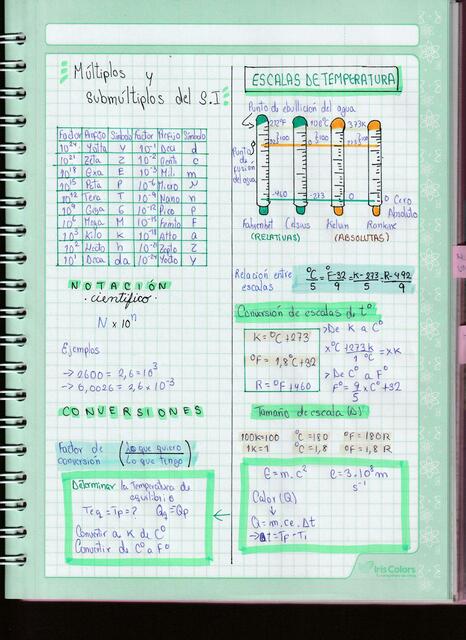 Múltiplos y
submúltiplos del S.I
Factor Prefijo Símbolo Factor Prefijo Símbolo
10²⁴ Yotta Y 10⁻¹ Deci d
10²¹ Zeta Z 10⁻² Centi c
10¹⁸ Exa E 10⁻³ Mili m
10¹⁵ Peta P 10⁻⁶ Micro
10¹² Tera T 10⁻⁹ Nano n
10⁹ Giga G 10⁻¹² Pico P
10⁶ Mega M 10⁻¹⁵ Femto F
10³ Kilo K 10⁻¹⁸ Atto a
10² Hecto h
10¹ Deca da 10⁻²⁴ Yocto Y
NOTACIÓN
científica.
N x 10ⁿ
Ejemplos
→ 2600 = 2,6 = 10³
→ 0,0026 = 2,6 x 10⁻³
CONVERSIONES
Factor de conversión (Lo que quiero / Lo que tengo)
Determinar la temperatura de
equilibrio
Teq = Tp = ? Qg = Qp
Convertir a K de C°
Convertir de C° a F°
ESCALAS DE TEMPERATURA
Punto de ebullición del agua
212°F 100°C 373K
Punto
de fusión
del agua
-460 -273 0 0
Cero
Absoluto
Fahrenheit Celsius Kelvin Rankine
(RELATIVAS) (ABSOLUTAS)
Relación entre
escalas
°C/5 = °F-32/9 = K-273/5 = R-492/9
Conversión de escalas de t°
K = °C+273
°F = 1,8°C+32
R = °F+460
> De K a C°
x°C + 273K / 1°C = xK
> De C° a F°
F° = 9/5 x C° + 32
Tamaño de escala (Δ)
100K=100 °C=180 °F=180R
1K=1 °C=1,8 °F=1,8 R
E = m.c² c = 3.10⁸ m
s⁻¹
Calor (Q)
↓
Q = m.ce.Δt
→ Δt = TF - Ti
Iris Colors